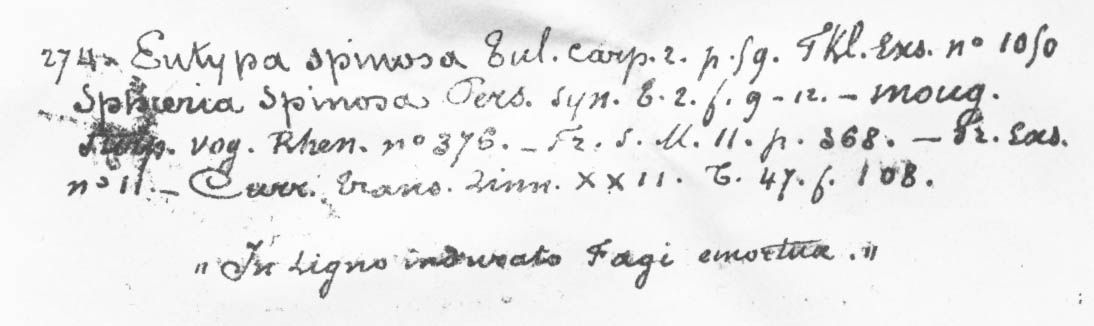 274. Eutypa spinosa Tul. Carp. 2. p. 59. Fkl. Exs. nº 1050
Sphæria Spinosa Pers. Syn. t. 2. f. 9-12. – Moug.
Stirp. Vog. Rhen. nº 376. – Fr. S. M. II. p. 368. – Fr. Exs.
nº II. – Curr. Trans. Linn. XXII. T. 47. f. 108.
„ In Ligno indurato Fagi emortua . "